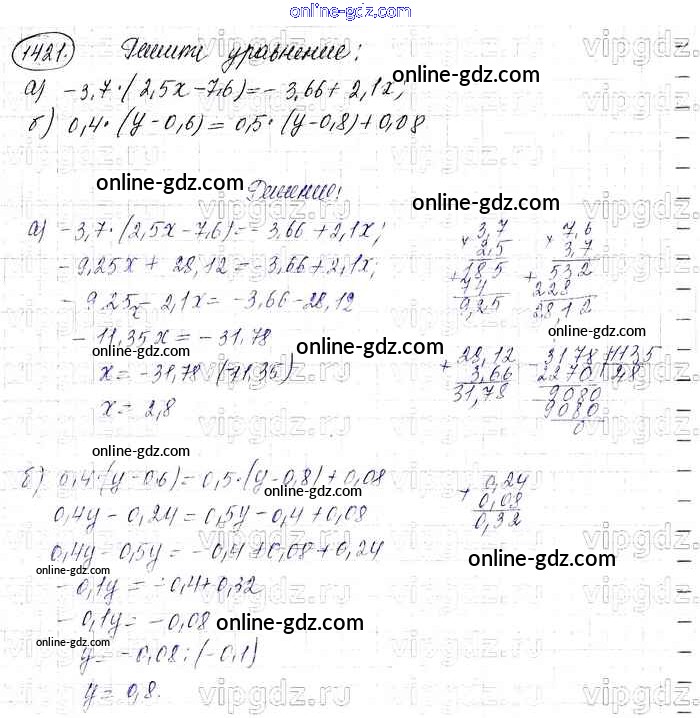 online-gdz.com
1421. Решите уравнение:
а) -3,7·(2,5x-7,6)=-3,66+2,1x;
б) 0,4·(y-0,6)=0,5·(y-0,8)+0,08
Решение:
а) -3,7·(2,5x-7,6)=-3,66+2,1x;
-9,25x+28,12=-3,66+2,1x;
-9,25x-2,1x=-3,66-28,12
-11,35x=-31,78
x=-31,78:(-11,35)
x=2,8
3,7
× 2,5
+ 185
74
9,25
7,6
× 3,7
+ 532
228
28,12
+ 28,12
3,66
31,78
- 3178 | 1135
2270 | 2,8
- 9080
9080
0
б) 0,4·(y-0,6)=0,5·(y-0,8)+0,08
0,4y-0,24=0,5y-0,4+0,08
0,4y-0,5y=-0,4+0,08+0,24
-0,1y=-0,4+0,32
-0,1y=-0,08
y=-0,08:(-0,1)
y=0,8.
+ 0,24
0,08
0,32
online-gdz.com
online-gdz.com
online-gdz.com
online-gdz.com
online-gdz.com
online-gdz.com
online-gdz.com
online-gdz.com
online-gdz.com
online-gdz.com
online-gdz.com
online-gdz.com
vipgdz.com